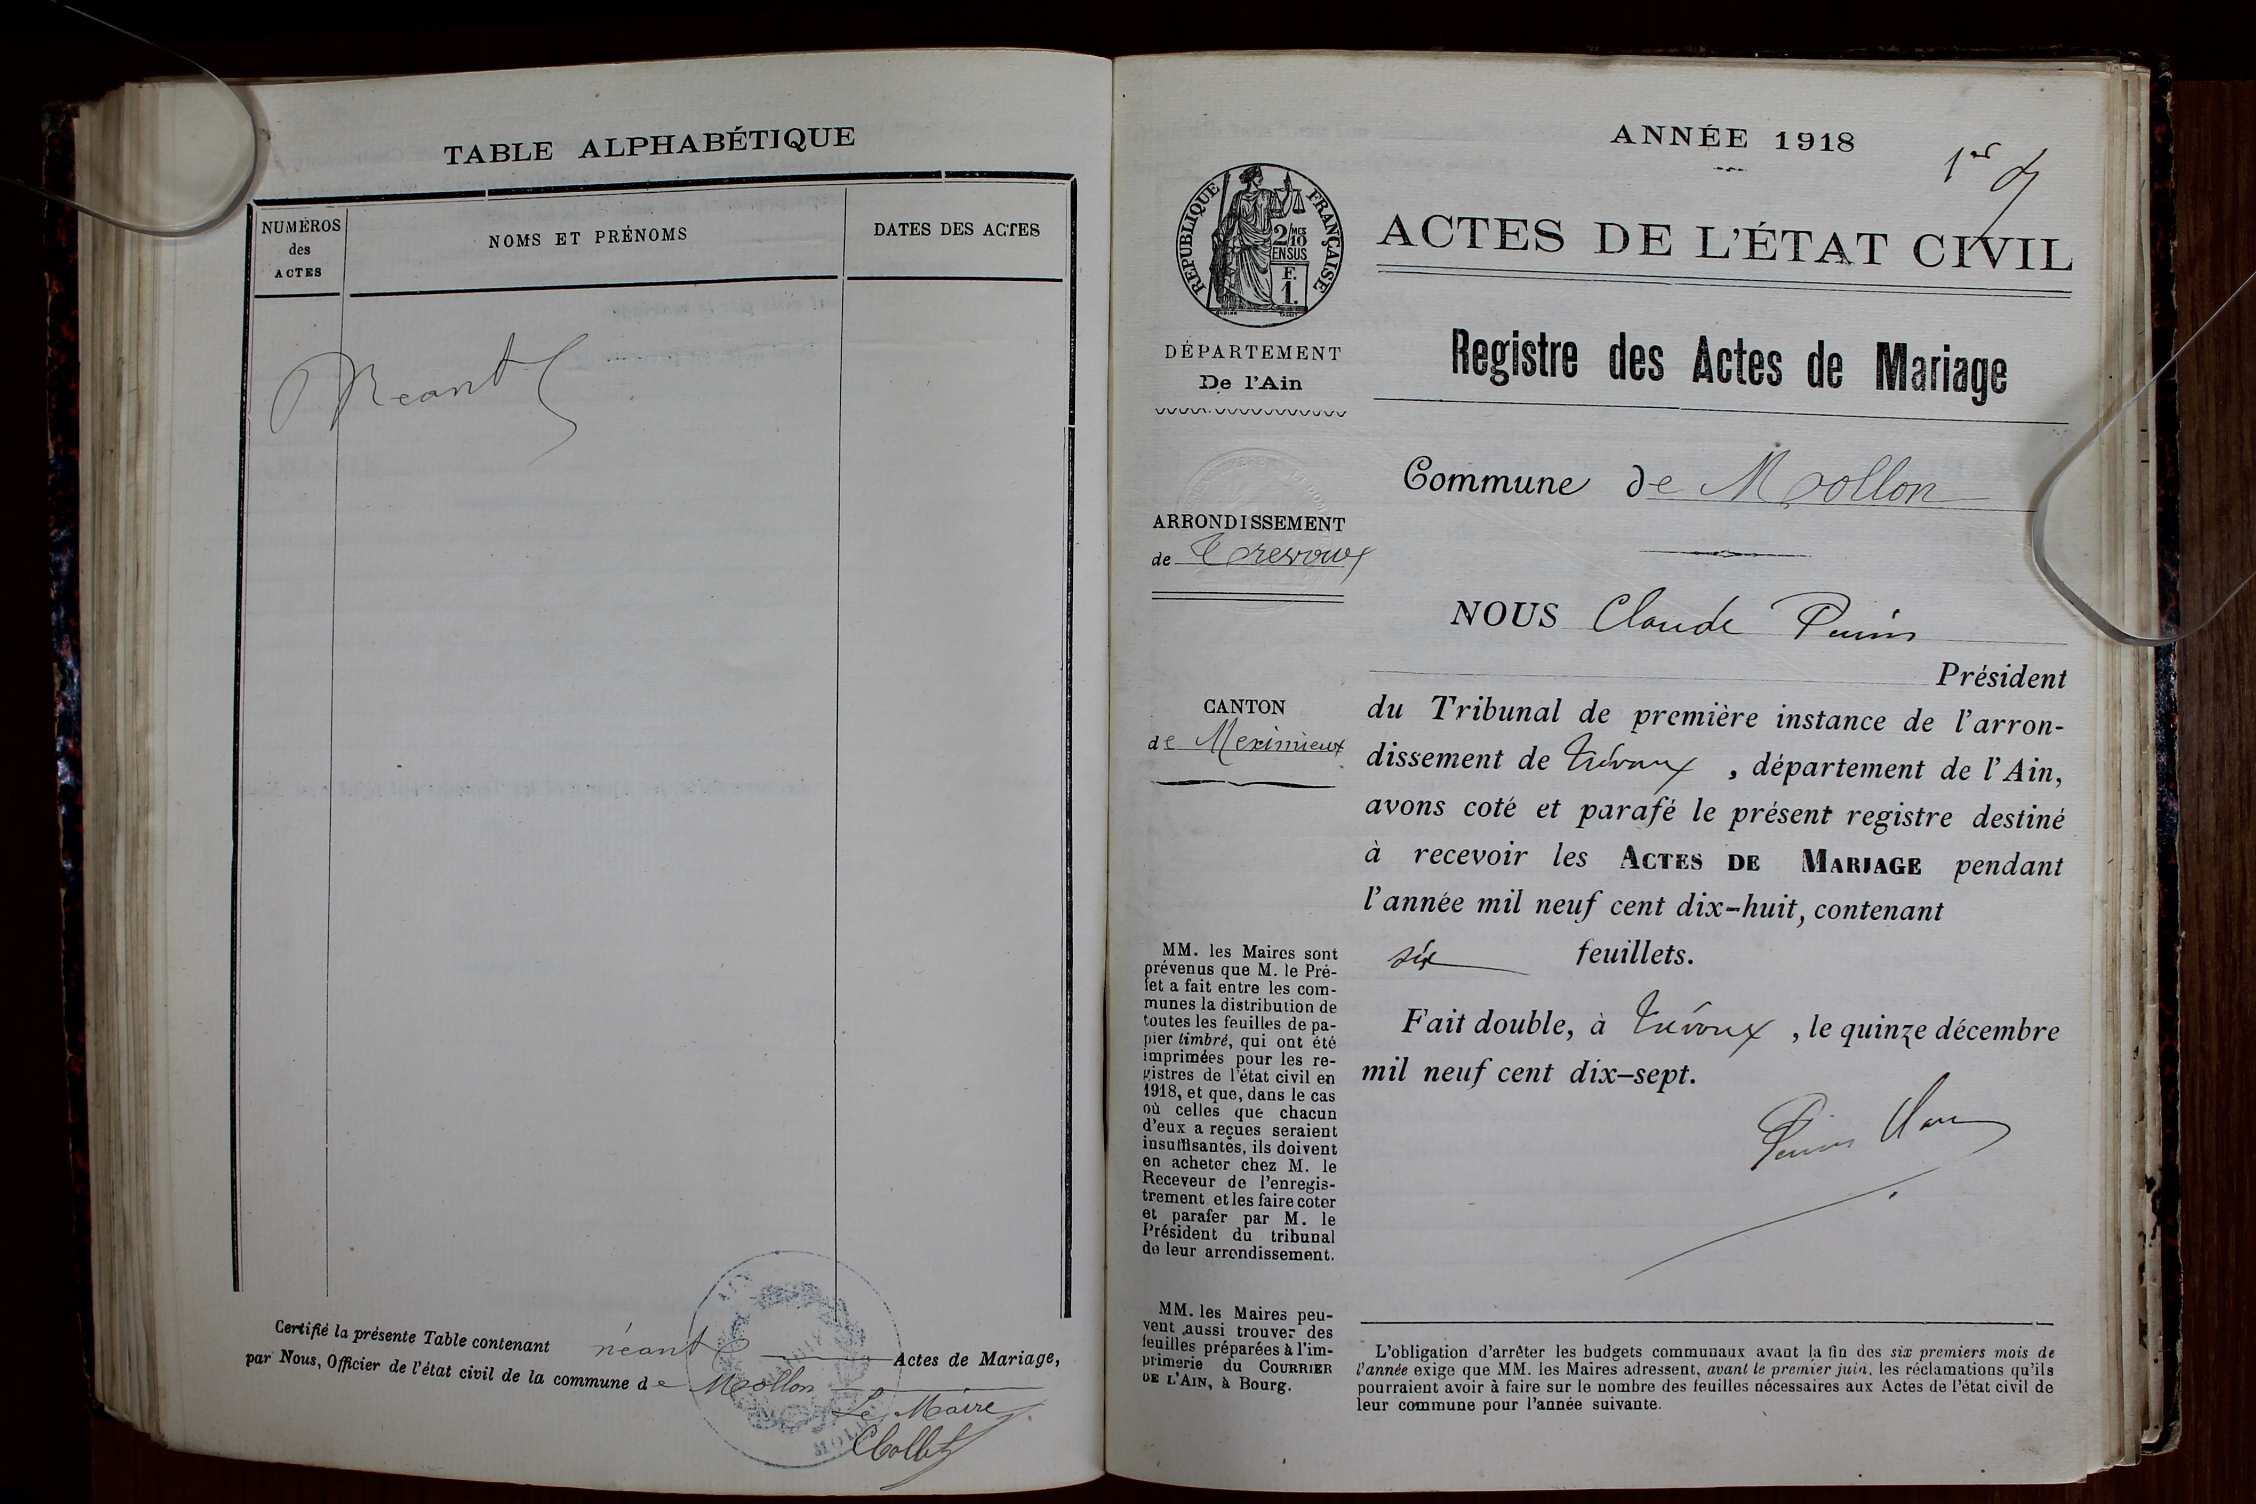 TABLE ALPHABÉTIQUE
NUMÉROS
des
ACTES
NOMS ET PRÉNOMS
DATES DES ACTES
Néant
Certifié la présente Table contenant néant Actes de Mariage,
par Nous, Officier de l'état civil de la commune de Mollon
Le Maire
ANNÉE 1918
1er
RÉPUBLIQUE FRANÇAISE
2/10 MES
EN SUS
F.
1.
DÉPARTEMENT
De l'Ain
ARRONDISSEMENT
de Trevoux
CANTON
de Meximieux
MM. les Maires sont
prévenus que M. le Pré-
fet a fait entre les com-
munes la distribution de
toutes les feuilles de pa-
pier timbré, qui ont été
imprimées pour les re-
gistres de l'état civil en
1918, et que, dans le cas
où celles que chacun
d'eux a reçues seraient
insuffisantes, ils doivent
en acheter chez M. le
Receveur de l'enregis-
trement et les faire coter
et parafer par M. le
Président du tribunal
de leur arrondissement.
MM. les Maires peu-
vent aussi trouver des
feuilles préparées à l'im-
primerie du COURRIER
DE L'AIN, à Bourg.
ACTES DE L'ÉTAT CIVIL
Registre des Actes de Mariage
Commune de Mollon
NOUS Claude
Président
du Tribunal de première instance de l'arron-
dissement de Trévoux, département de l'Ain,
avons coté et parafé le présent registre destiné
à recevoir les ACTES DE MARIAGE pendant
l'année mil neuf cent dix-huit, contenant
six feuillets.
Fait double, à Trévoux, le quinze décembre
mil neuf cent dix-sept.
L'obligation d'arrêter les budgets communaux avant la fin des six premiers mois de
l'année exige que MM. les Maires adressent, avant le premier juin, les réclamations qu'ils
pourraient avoir à faire sur le nombre des feuilles nécessaires aux Actes de l'état civil de
leur commune pour l'année suivante.